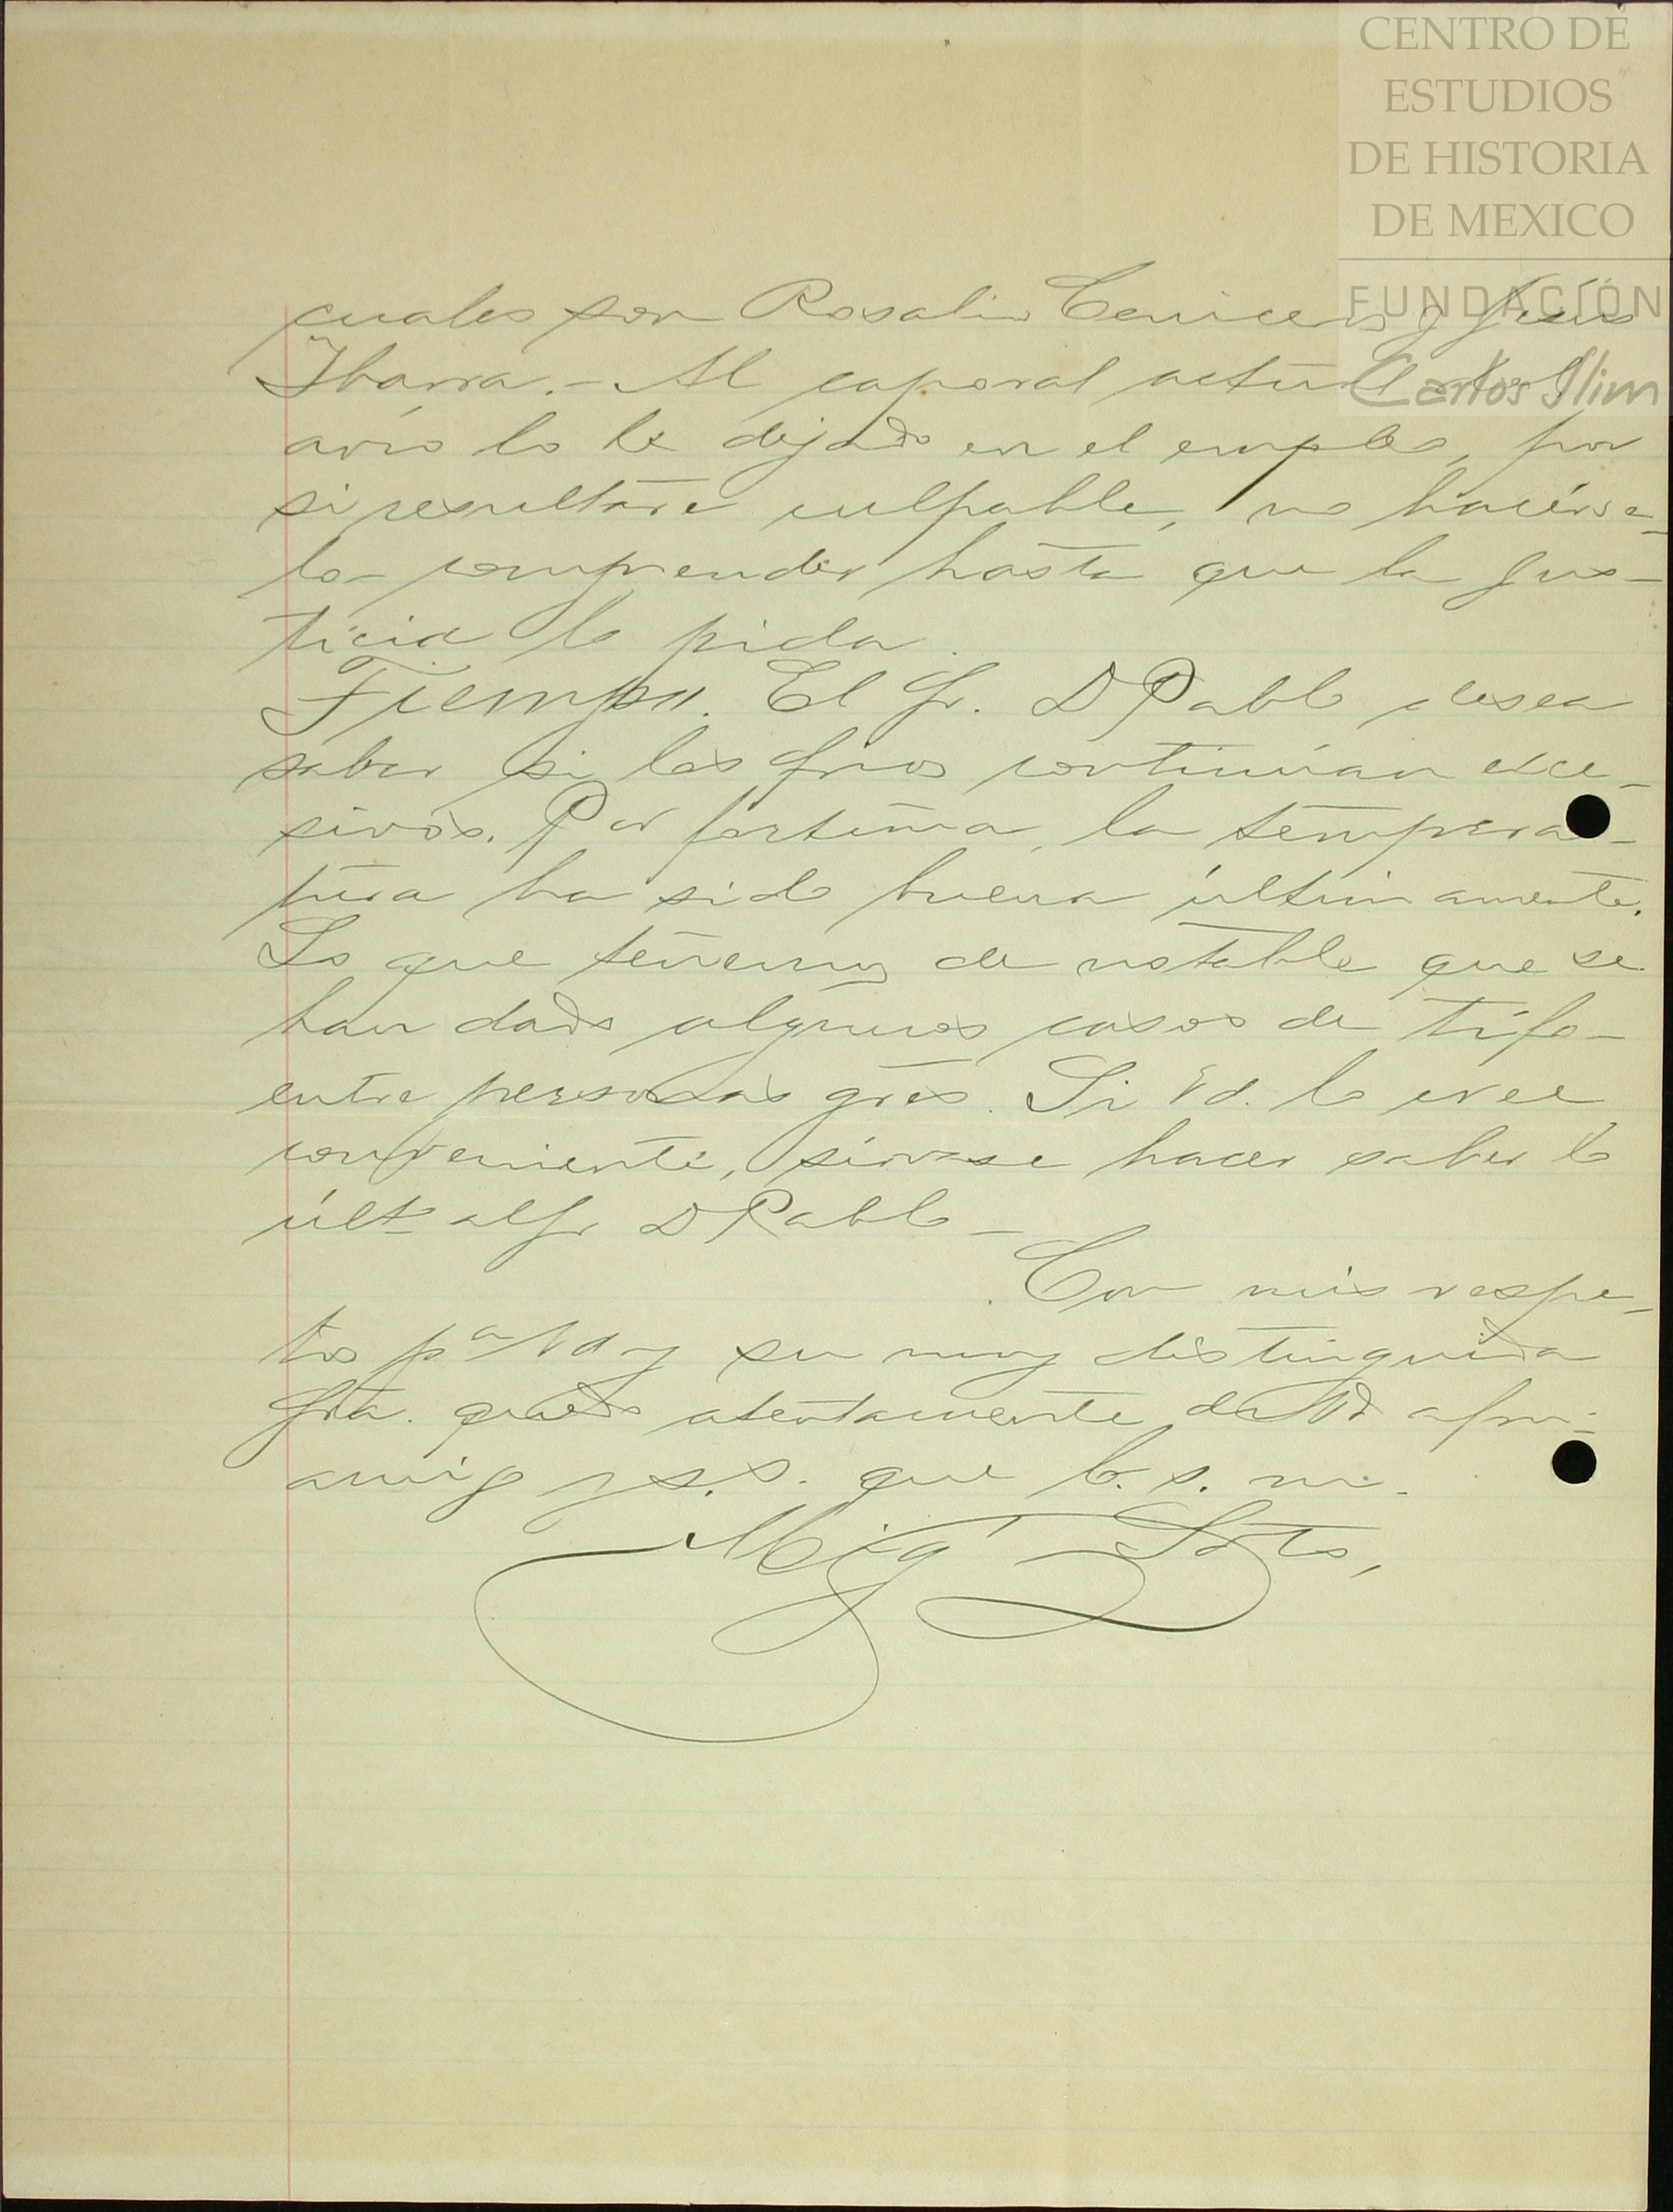 CENTRO DE
ESTUDIOS
DE HISTORIA
DE MEXICO
FUNDACIÓN
Carlos Slim
cuales son Rosalio Ceniceros y Jesús
Ibarra. - Al caporal actual del
avío lo he dejado en el empleo, por
si resultare culpable, no hacérse-
lo comprender hasta que la Jus-
ticia lo pida.
Tiempo. El Sr. D Pablo desea
saber si los frios continúan exce-
sivos. Por fortuna, la tempera-
tura ha sido buena últimamente.
Lo que tenemos de notable que se
han dado algunos casos de tifo
entre personas grés. Si Vd. lo cree
conveniente, sírvase hacer saber lo
últo al Sr D Pablo -
Con mis respe-
tos pa Vd y su muy distinguida
Sra. quedo atentamente de Vd afmo
amigo y s.s. que b. s. m.
Migl Soto,